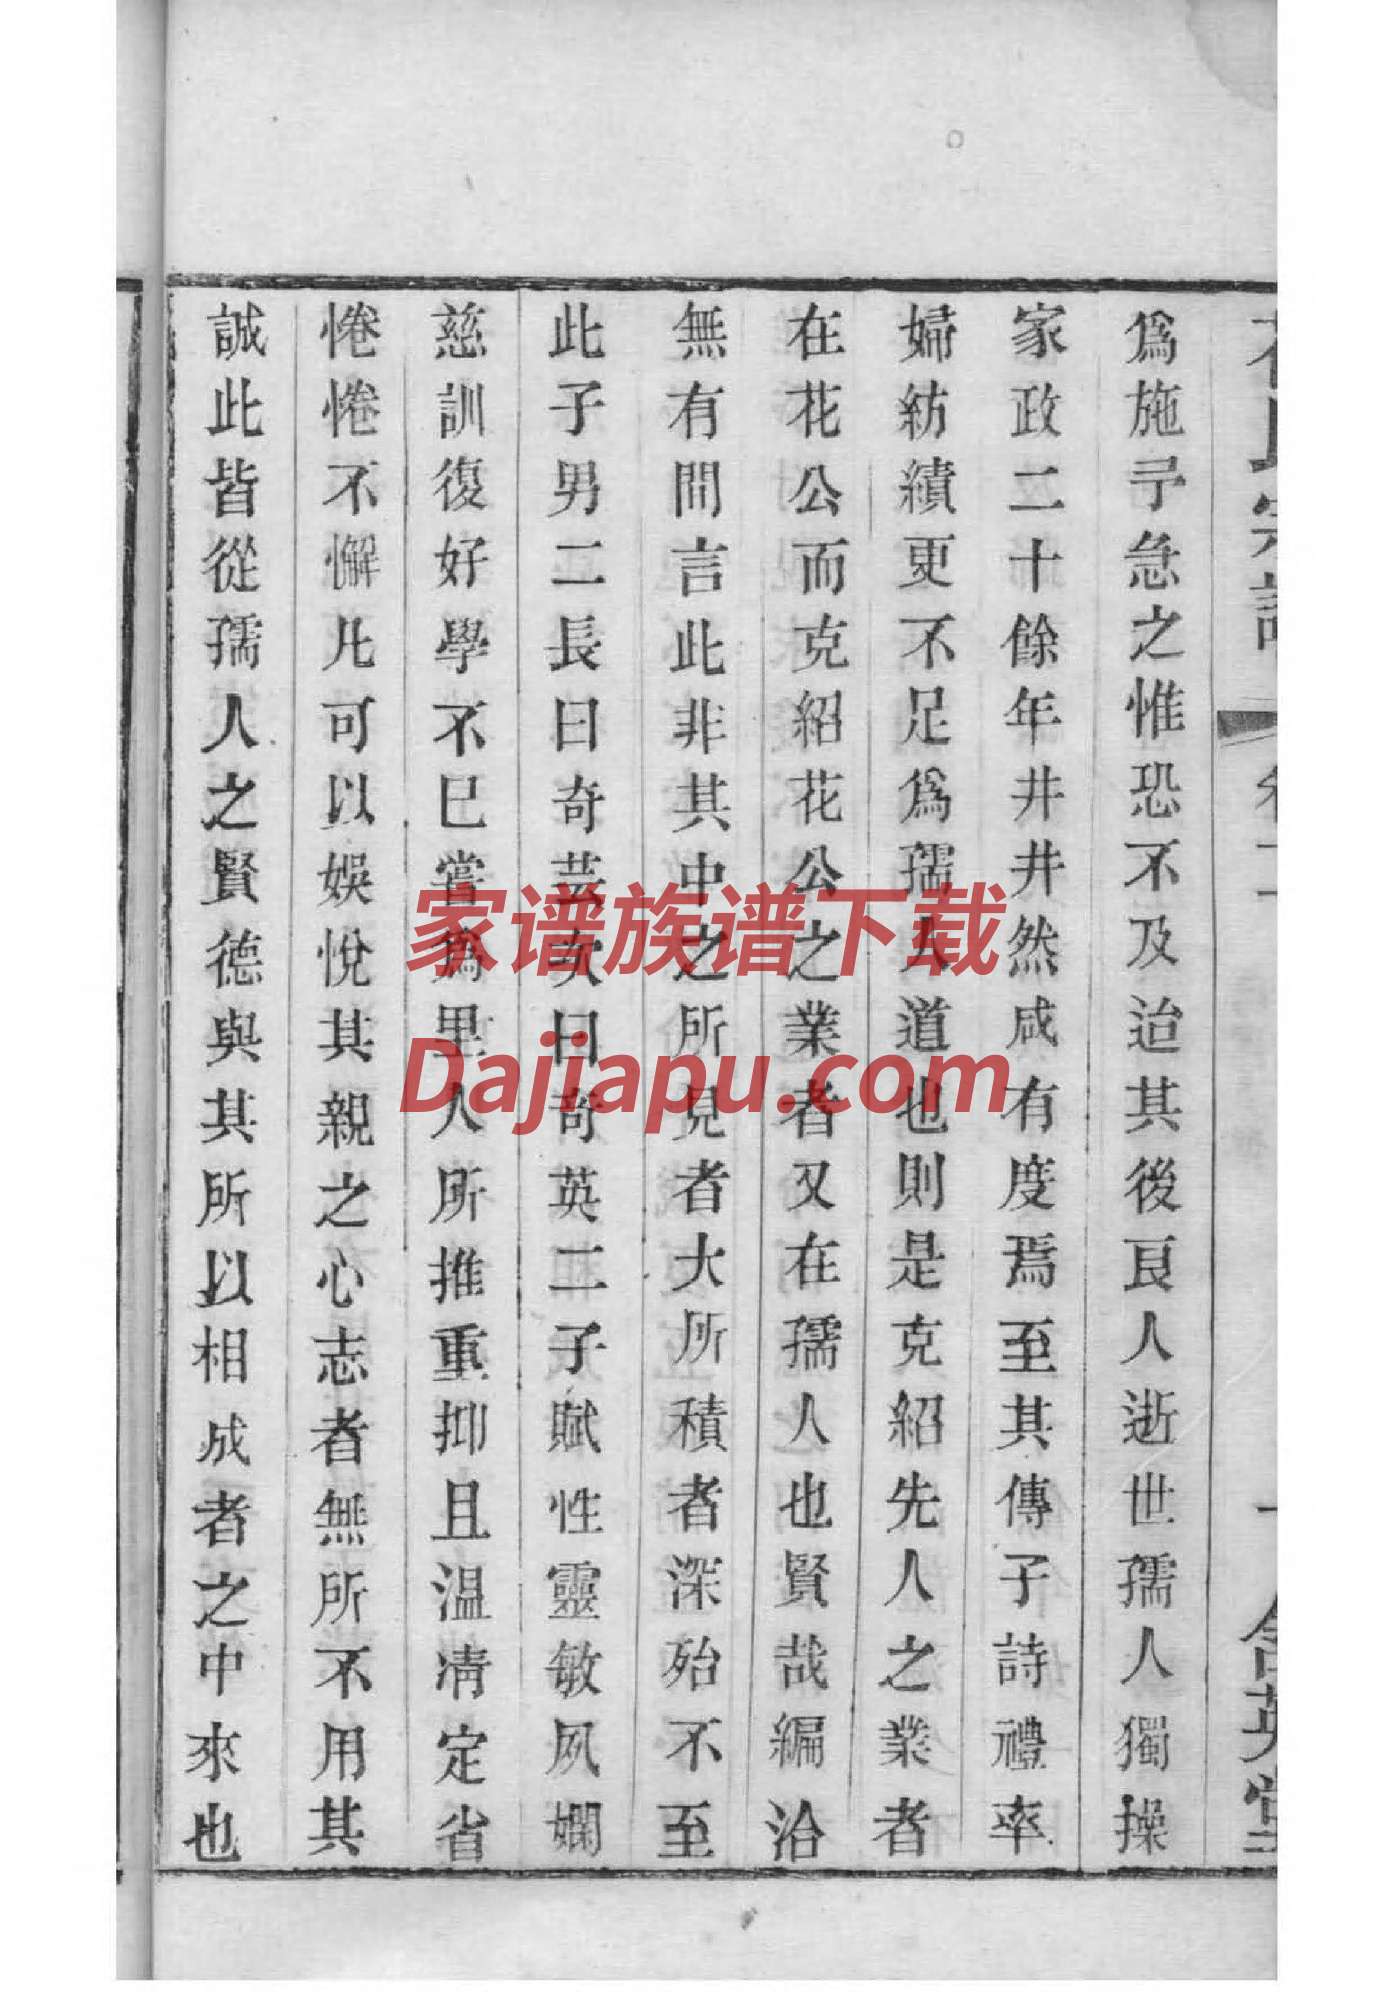 爲施予急之惟恐不及迨其後良人逝世孺人獨操
家政二十餘年井井然咸有度焉至其傳子詩禮率
婦紡績更不足爲孺人道也則是克紹先人之業者
在花公而克紹花公之業者又在孺人也賢哉編洽
無有間言此非其中之所見者大所積者深殆不至
此子男二長曰奇芸次曰奇英二子賦性靈敏夙嫻
慈訓復好學不已嘗爲里人所推重抑且温凊定省
惓惓不懈凡可以娛悅其親之心志者無所不用其
誠此皆從孺人之賢德與其所以相成者之中來也
家谱族谱下载
Dajiapu.com